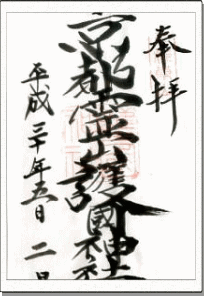 奉拝
京都霊山護國神社
平成三十年五月二日